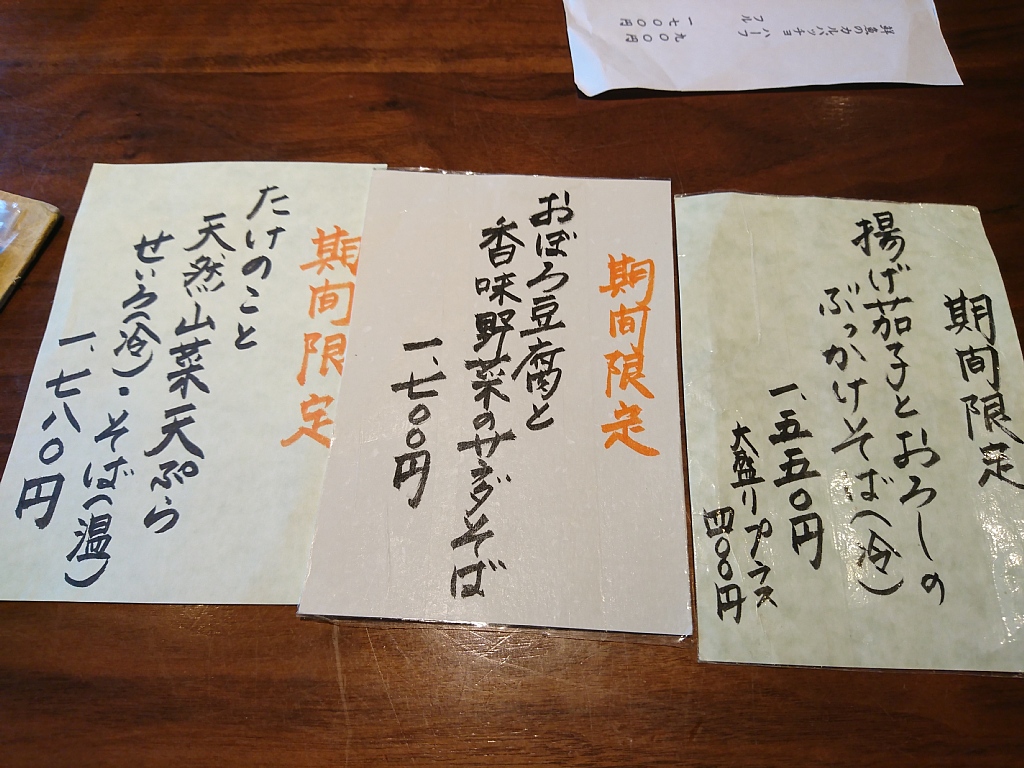 期間限定
揚げ茄子とおろしの
ぶっかけそば(冷)
一、五五〇円
大盛りプラス
四〇〇円
期間限定
おぼろ豆腐と
香味野菜のサラダそば
一、七〇〇円
期間限定
たけのこと
天然山菜天ぷら
せいろ(冷)・そば(温)
一、七八〇円
鮮魚のカルパッチョ ハーフ 九〇〇円
フル 一七〇〇円